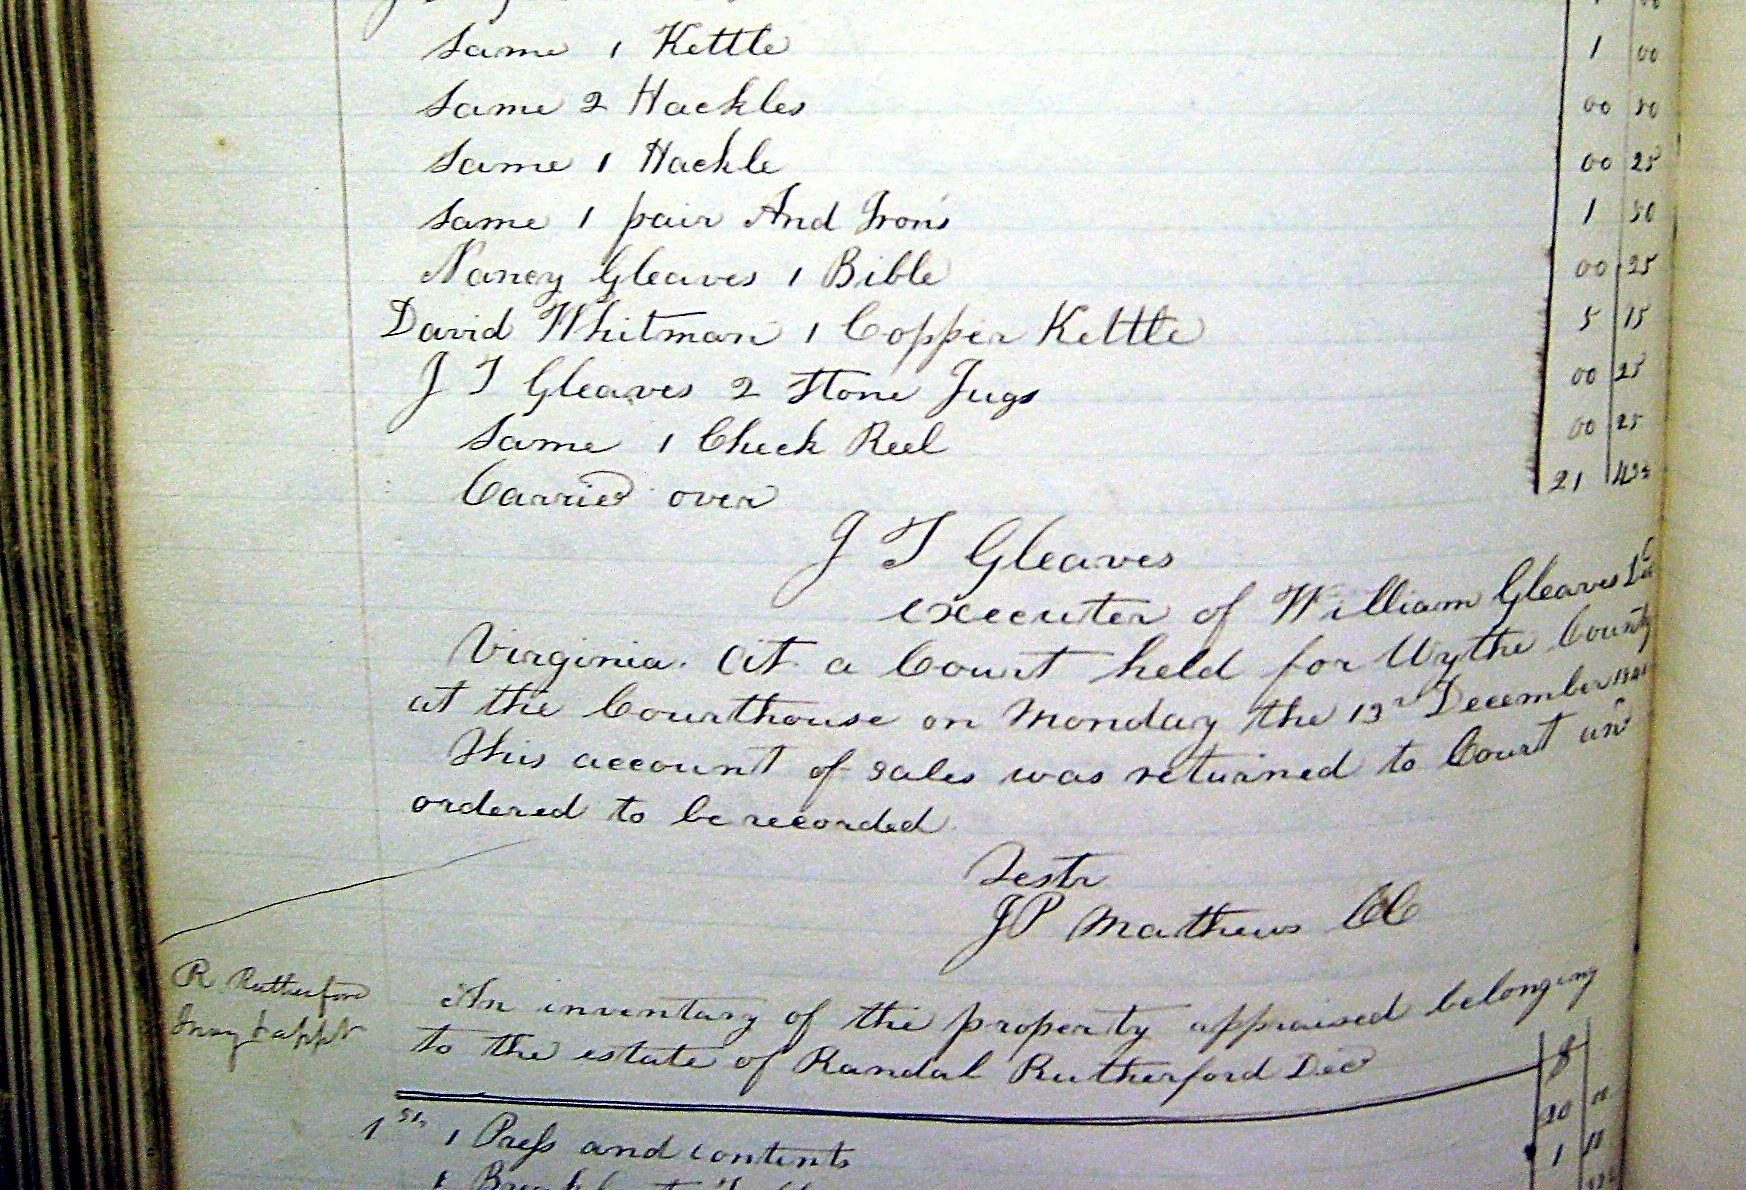 Same 1 Kettle 1 00
Same 2 Hackles 00 50
Same 1 Hackle 00 25
Same 1 pair And Irons 1 50
Nancy Gleaves 1 Bible 00 25
David Whitman 1 Copper Kettle 5 15
J T Gleaves 2 Stone Jugs 00 25
Same 1 Check Reel 00 25
Carried over 21
J T Gleaves
executer of William Gleaves Dec
Virginia. At a Court held for Wythe County
at the Courthouse on Monday the 13 December
This account of sales was returned to Court an
ordered to be recorded
Teste
JP Mathews CC
R Rutherford
Invy & appt
An inventary of the property appraised belonging
to the estate of Randal Rutherford Decd $
1st 1 Press and contents
1